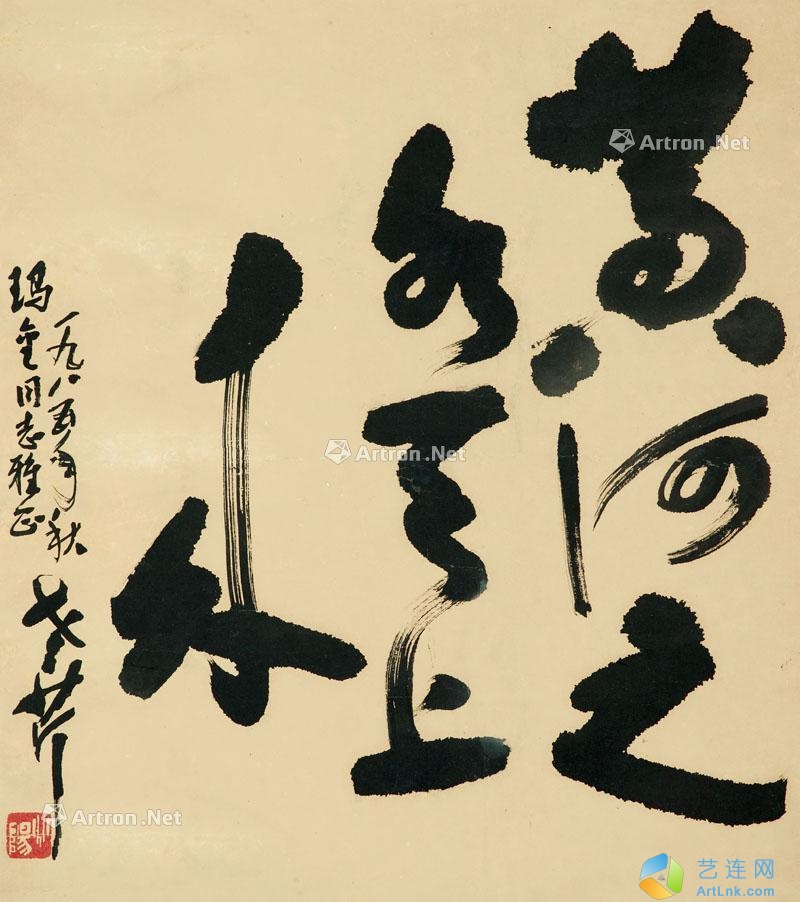 黄河之
水天上
来
一九八五年秋
玛金同志雅正
Artron.Net
Artron.Net
Artron.Net
艺连网
ArtLnk.com